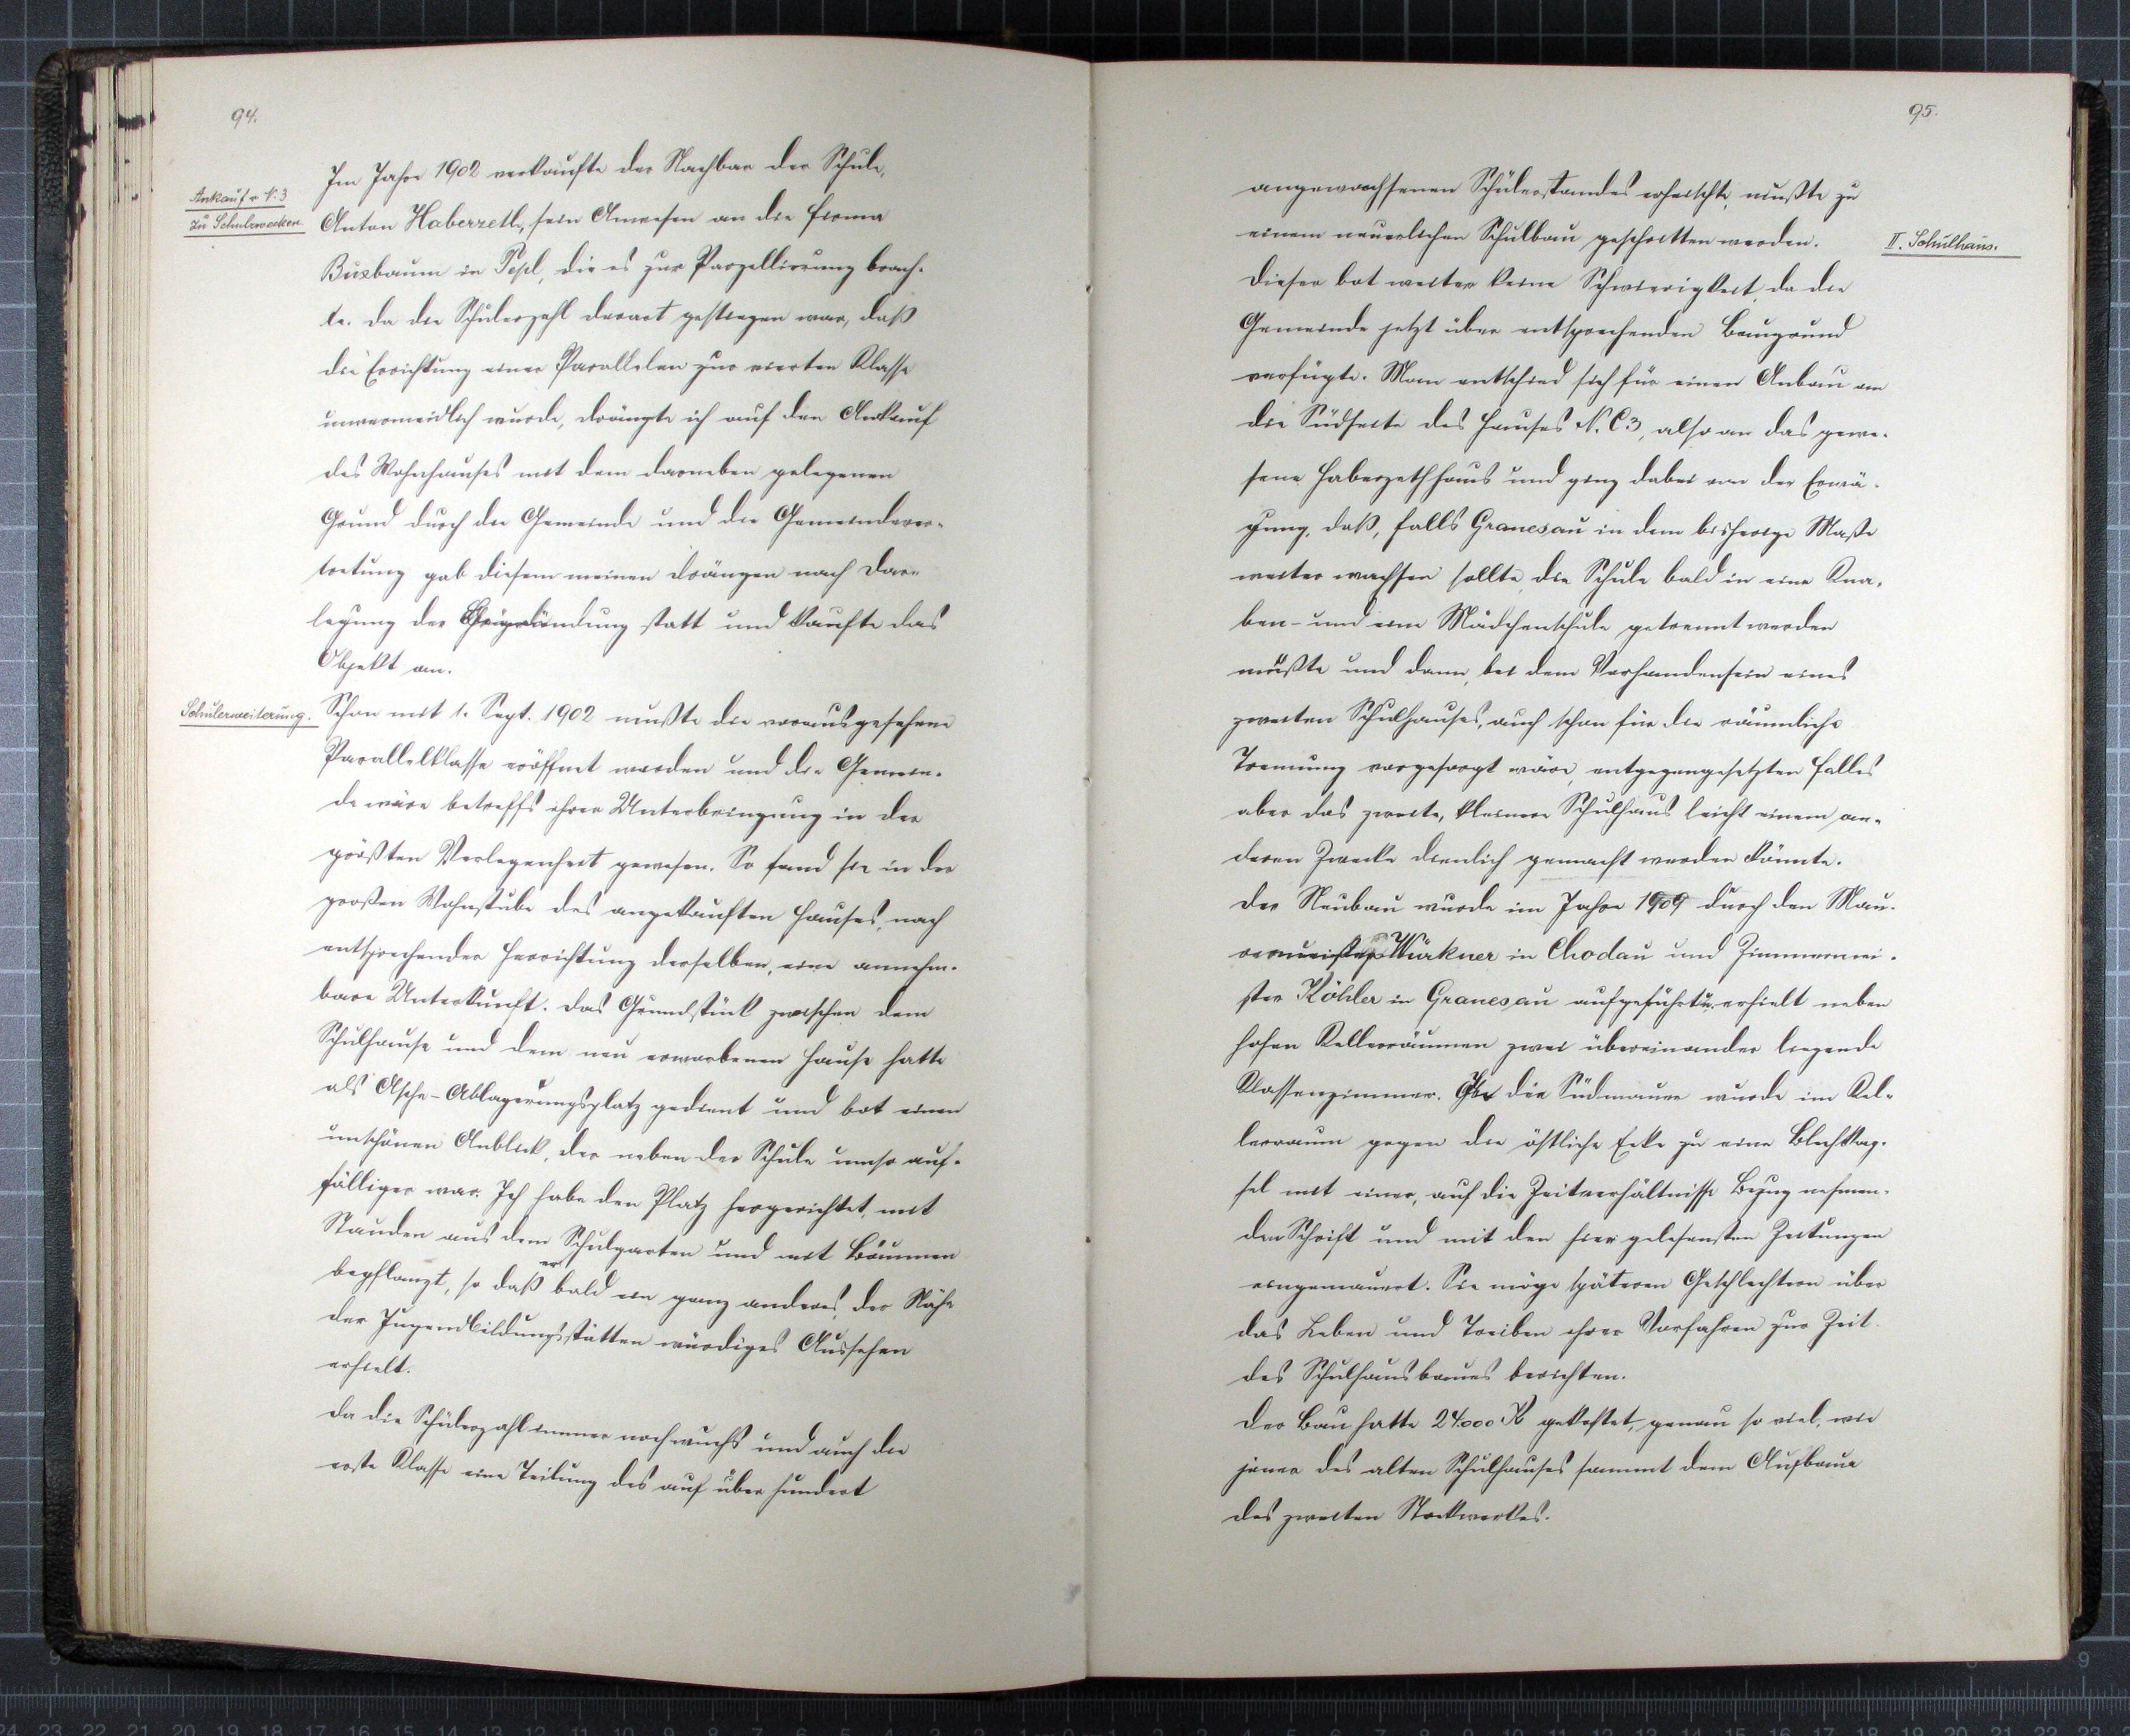 94.
Ankauf v. N. 3
zu Schulzwecken.
Im Jahre 1902 verkaufte der Nachbar der Schule,
Anton Haberzettl, sein Anwesen an die Firma
Buxbaum in Tepl, die es zur Parzellierung brach-
te. Da die Schülerzahl derart gestiegen war, daß
die Errichtung einer Parallelen zur vierten Klasse
unvermeidlich wurde, drängte ich auf den Ankauf
des Wohnhauses mit dem darneben gelegenen
Grund durch die Gemeinde und die Gemeindever-
tretung gab diesem meinen Drängen nach Dar-
legung der Begründung statt und kaufte das
Objekt an.
Schulerweiterung.
Schon mit 1. Sept. 1902 mußte die vorausgesehene
Parallelklasse eröffnet werden und die Gemein-
de wäre betreffs ihrer Unterbringung in der
größten Verlegenheit gewesen. So fand sie in der
großen Wohnstube des angekauften Hauses, nach
entsprechender Herrichtung derselben, eine annehm-
bare Unterkunft. Das Grundstück zwischen dem
Schulhause und dem neu erworbenen Hause hatte
als Asche-Ablagerungsplatz gedient und bot einen
unschönen Anblick, der neben der Schule umso auf-
fälliger war. Ich habe den Platz hergerichtet, mit
Stauden aus dem Schulgarten und mit Bäumen
bepflanzt, so daß er bald ein ganz anderes, der Nähe
der Jugendbildungsstätten würdiges Aussehen
erhielt.
Da die Schülerzahl immer noch wuchs und auch die
erste Klasse eine Teilung des auf über hundert
95.
angewachsenen Schülerstandes erheischte, mußte zu
einem neuerlichen Schulbau geschritten werden.
II. Schulhaus.
Dieser bot weiter keine Schwierigkeit, da die
Gemeinde jetzt über entsprechenden Baugrund
verfügte. Man entschied sich für einen Anbau an
die Südseite des Hauses N. C 3, also an das gewe-
sene Haberzethhaus und ging dabei von der Erwä-
gung, daß, falls Granesau in dem bisherige Maße
weiter wachsen sollte, die Schule bald in eine Kna-
ben- und eine Mädchenschule getrennt werden
müßte und dann, bei dem Vorhandensein eines
zweiten Schulhauses, auch schon für die räumliche
Trennung vorgesorgt wäre, entgegengesetzten Falles
aber das zweite, kleinere Schulhaus leicht einem an-
deren Zwecke dienlich gemacht werden könnte.
Der Neubau wurde im Jahre 1909 durch den Mau-
rermeister Würkner in Chodau und Zimmermei-
ster Köhler in Granesau aufgeführt u. erhielt neben
hohen Kellerräumen zwei übereinander liegende
Klassenzimmer. In die Südmauer wurde im Kel-
lerraum gegen die östliche Ecke zu eine Blechkap-
sel mit einer, auf die Zeitverhältnisse Bezug nehmen-
den Schrift und mit den hier gelesensten Zeitungen
eingemauert. Sie möge späteren Geschlechtern über
das Leben und Treiben ihrer Vorfahren zur Zeit
des Schulhausbaues berichten.
Der Bau hatte 24000 K gekostet, genau so viel, wie
jener des alten Schulhauses sammt dem Aufbaue
des zweiten Stockwerkes.